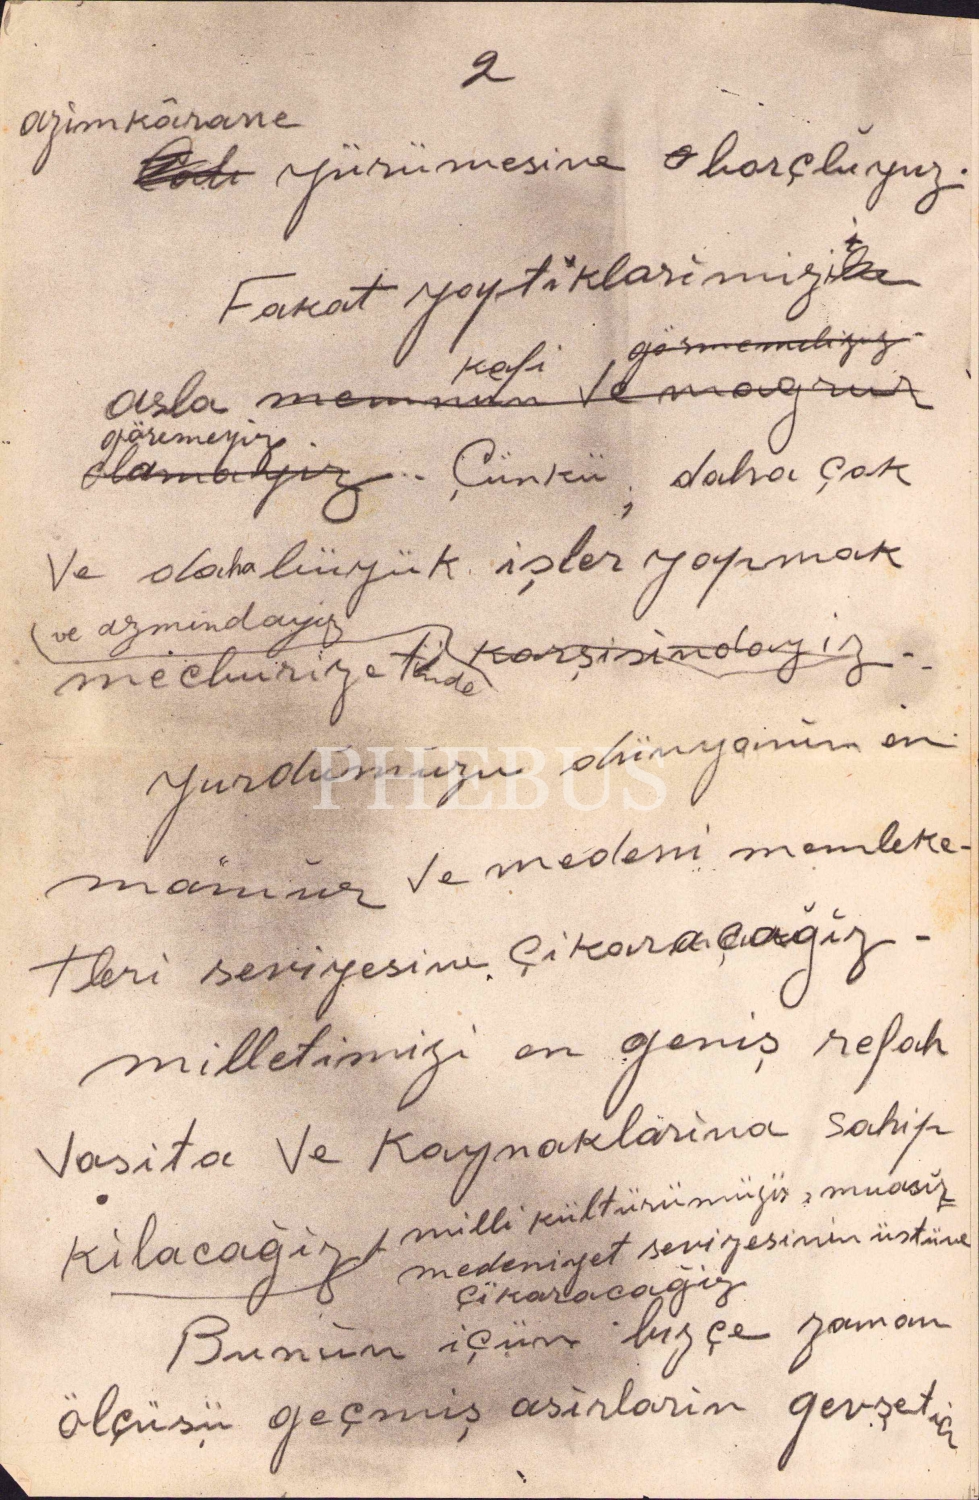 2
azimkârane
yürümesine borçluyuz.
Fakat yaptıklarimizi
görmemeliyiz
kafi
asla memnun Ve magrur
göremeyiz.
olamayiz .. Çünkü, daha çok
Ve daha büyük işler yapmak
ve azmindayiz
mecburiyetinde karşisindayiz ..
yurdumuzu dünyanin en
mamur Ve medeni memleke-
tleri seviyesine çikaraçağiz -
milletimizi en geniş refah
Vasita Ve Kaynaklarina sahip
kilacağiz milli kültürümüzü, muasir
medeniyet seviyesinin üstüne
çikaracağiz
Bunun içün bizçe zaman
ölçüsü geçmiş asirlarin gevşetici
PHEBUS